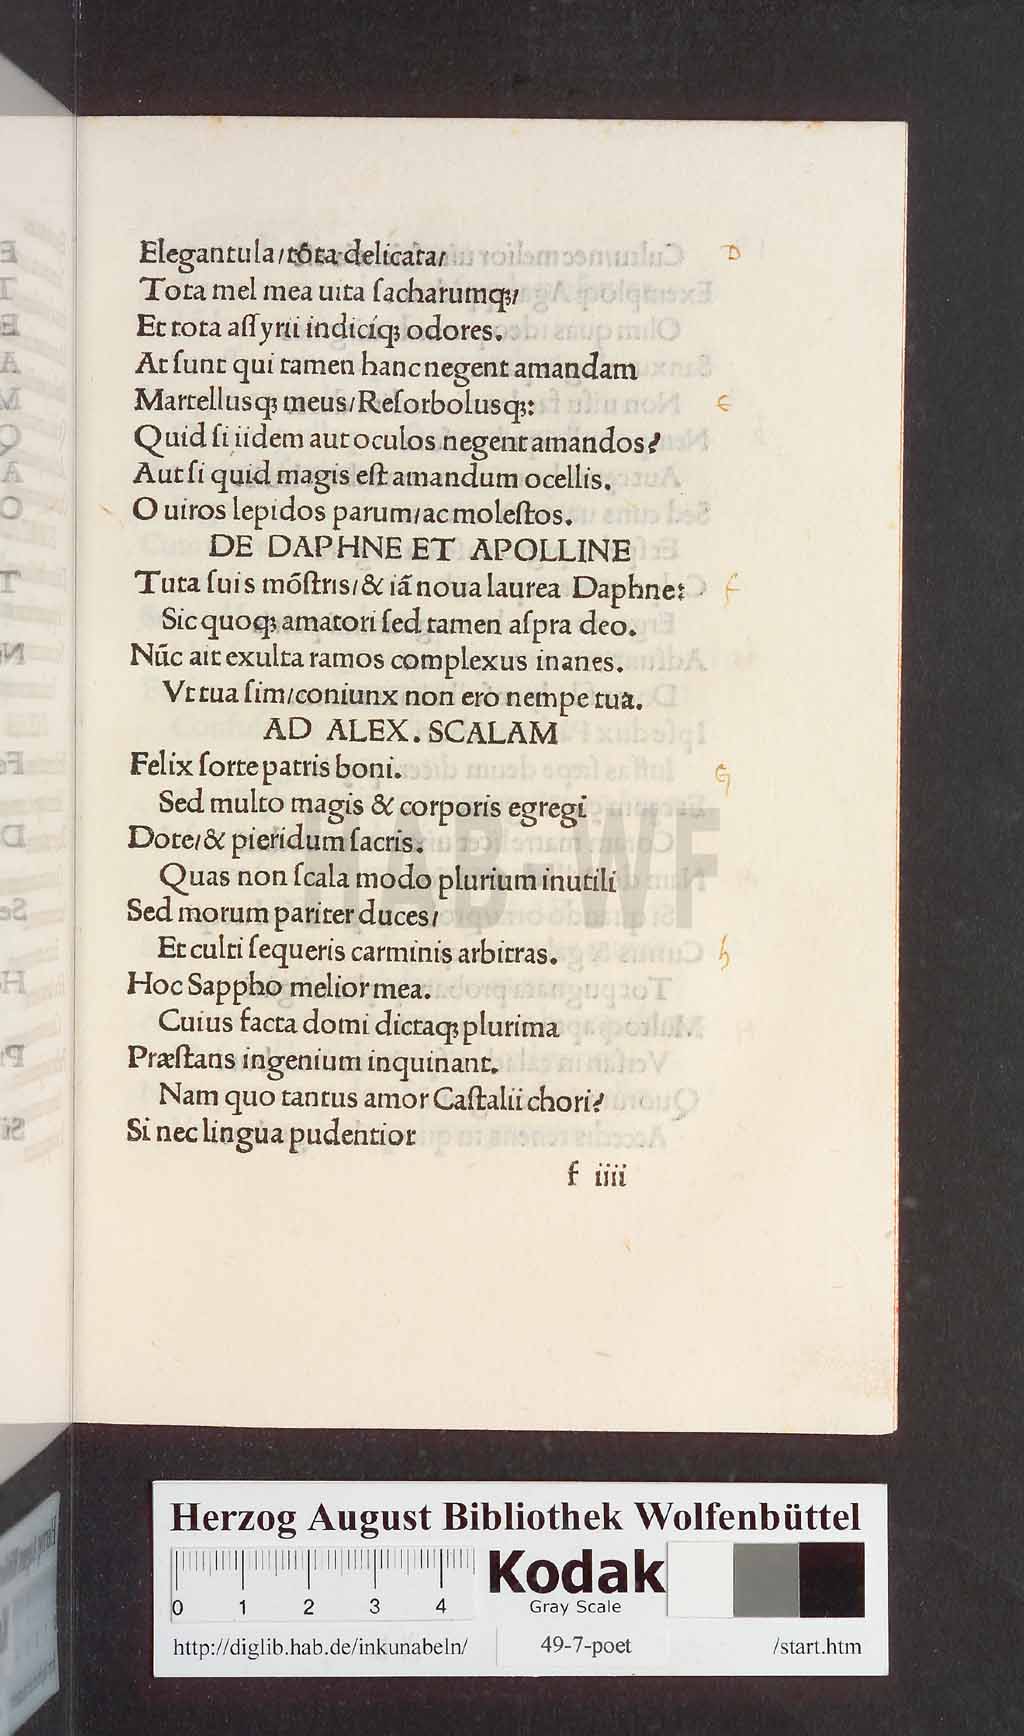 Elegantula/tóta delicata/
Tota mel mea uita ſacharumqꝫ/
Et tota aſſyrii indicíqꝫ odores.
At ſunt qui tamen hanc negent amandam
Martellusqꝫ meus/Reſorbolusqꝫ:
Quid ſi iidem aut oculos negent amandos?
Aut ſi quid magis eſt amandum ocellis.
O uiros lepidos parum/ac moleſtos.
DE DAPHNE ET APOLLINE
Tuta ſuis mōſtris/& iã noua laurea Daphne:
Sic quoqꝫ amatori ſed tamen aſpra deo.
Nũc ait exulta ramos complexus inanes.
Vt tua ſim/coniunx non ero nempe tua.
AD ALEX. SCALAM
Felix ſorte patris boni.
Sed multo magis & corporis egregi
Dote/& pieridum ſacris.
Quas non ſcala modo plurium inutili
Sed morum pariter duces/
Et culti ſequeris carminis arbitras.
Hoc Sappho melior mea.
Cuius facta domi dictaqꝫ plurima
Præſtans ingenium inquinant.
Nam quo tantus amor Caſtalii chori?
Si nec lingua pudentior
f iiii
D
E
F
G
h
HAB-WF
Herzog August Bibliothek Wolfenbüttel
0 1 2 3 4
Kodak
Gray Scale
http://diglib.hab.de/inkunabeln/ 49-7-poet /start.htm